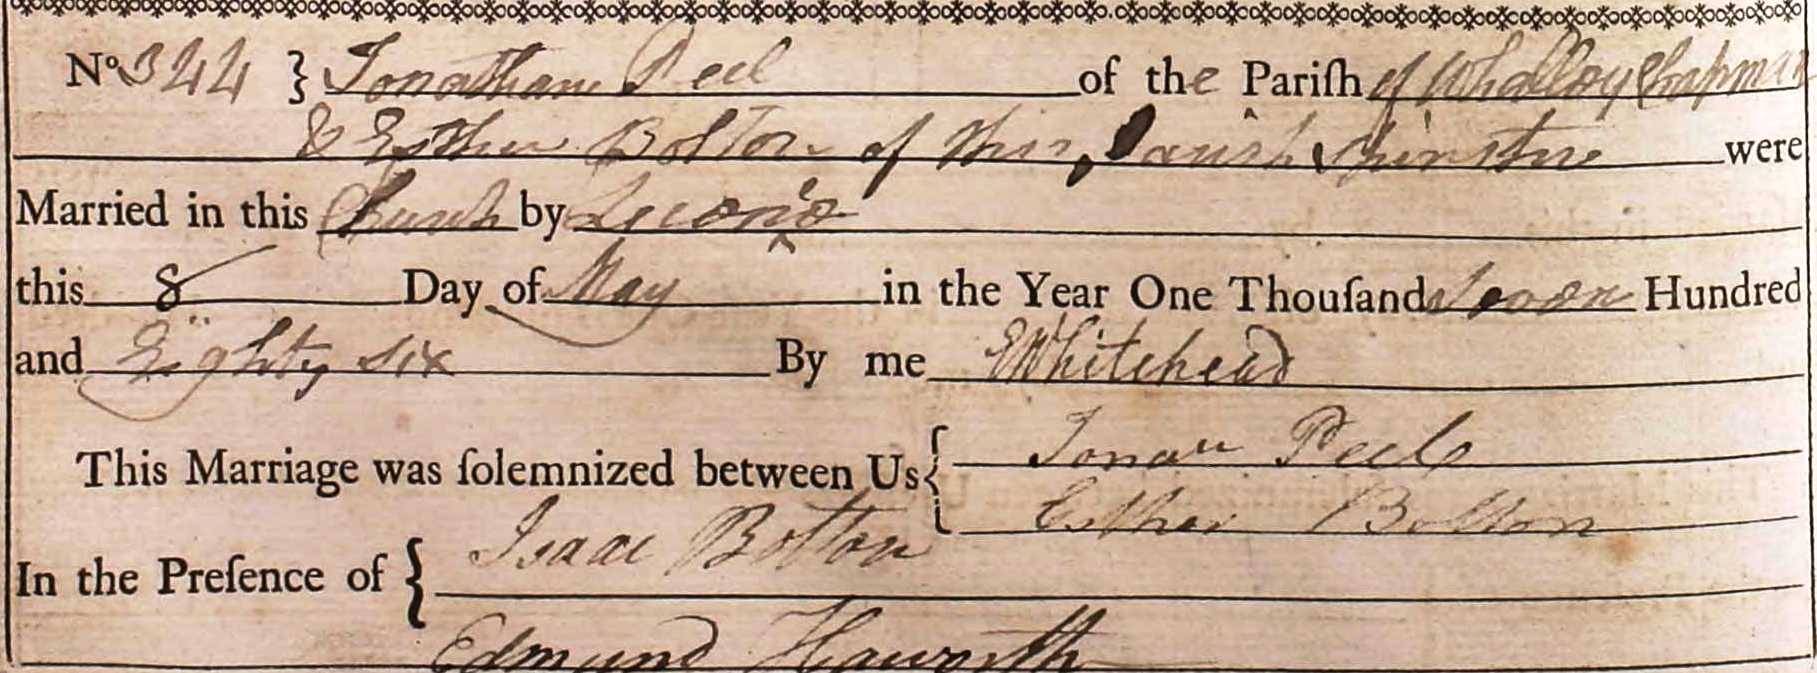 No 344 } Jonathan Peel of the Pariſh of Whalley Chapman
& Esther Bolton of this Parish Spinster were
Married in this Church by Licence
this 8 Day of May in the Year One Thouſand Seven Hundred
and Eighty six By me E Whitehead
This Marriage was ſolemnized between Us { Jonan Peel
Esther Bolton
In the Preſence of { Isaac Bolton
Edmund Haworth